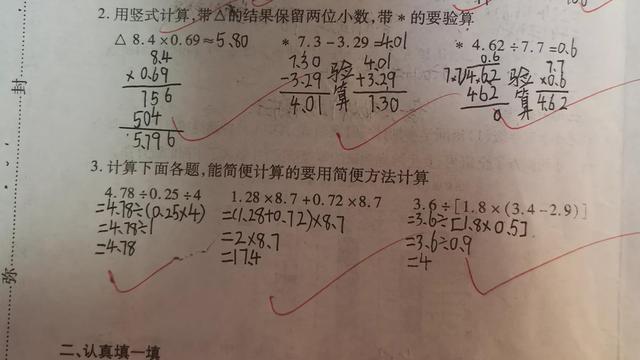 2. 用竖式计算,带△的结果保留两位小数,带*的要验算
△ 8.4×0.69≈5.80
* 7.3-3.29=4.01
* 4.62÷7.7=0.6
8.4
×0.69
756
504
5.796
7.30
-3.29
4.01
验算
4.01
+3.29
7.30
0.6
7.7√4.62
462
0
验算
7.7
×0.6
4.62
3. 计算下面各题,能简便计算的要用简便方法计算
4.78÷0.25÷4
=4.78÷(0.25×4)
=4.78÷1
=4.78
1.28×8.7+0.72×8.7
=(1.28+0.72)×8.7
=2×8.7
=17.4
3.6÷[1.8×(3.4-2.9)]
=3.6÷[1.8×0.5]
=3.6÷0.9
=4
二、认真填一填
封
弥